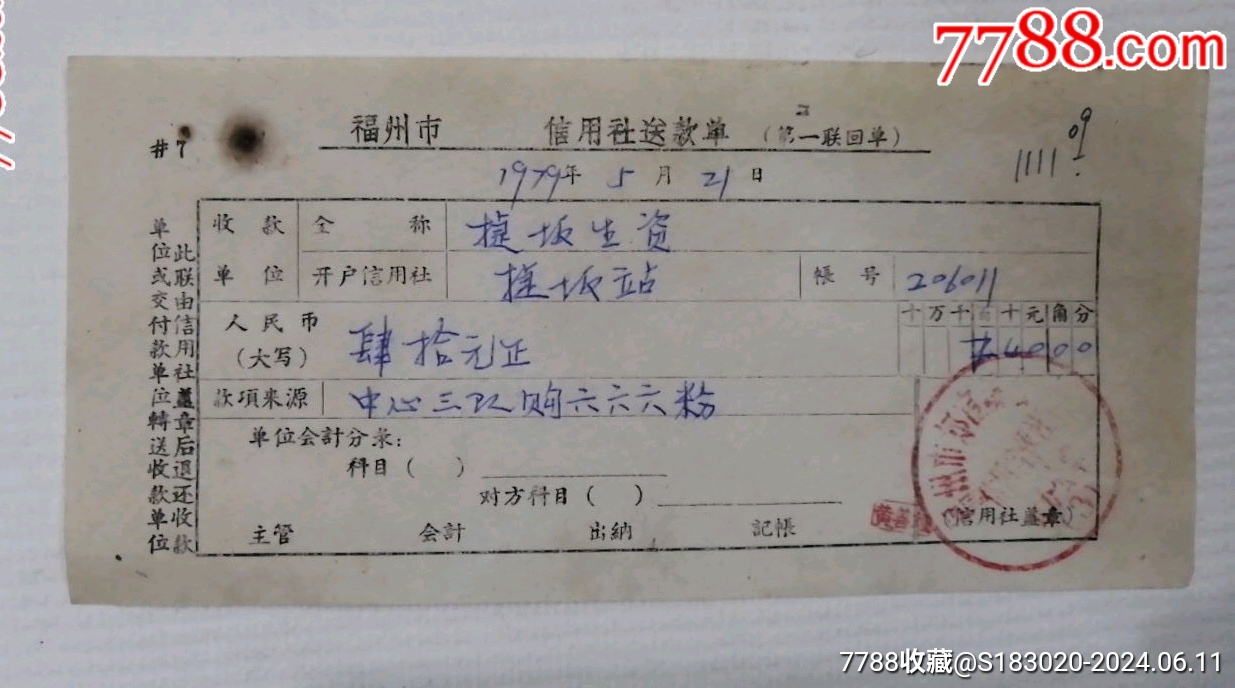 7788.com
福州市 信用社送款单 (第一联回单)
#7
09
1111
1979年 5月 21日
收款单位 全称 捷坂生资
开户信用社 捷坂站 帳号 206011
人民币(大写) 肆拾元正
十万千百十元角分
¥4000
款項来源 中心三队购六六六粉
单位会計分录:
科目( )
对方科目( )
主管 会計 出纳 記帳 (信用社盖章)
此联由信用社盖章后退还收款
单位或交付款单位轉送收款单位
7788收藏@S183020-2024.06.11